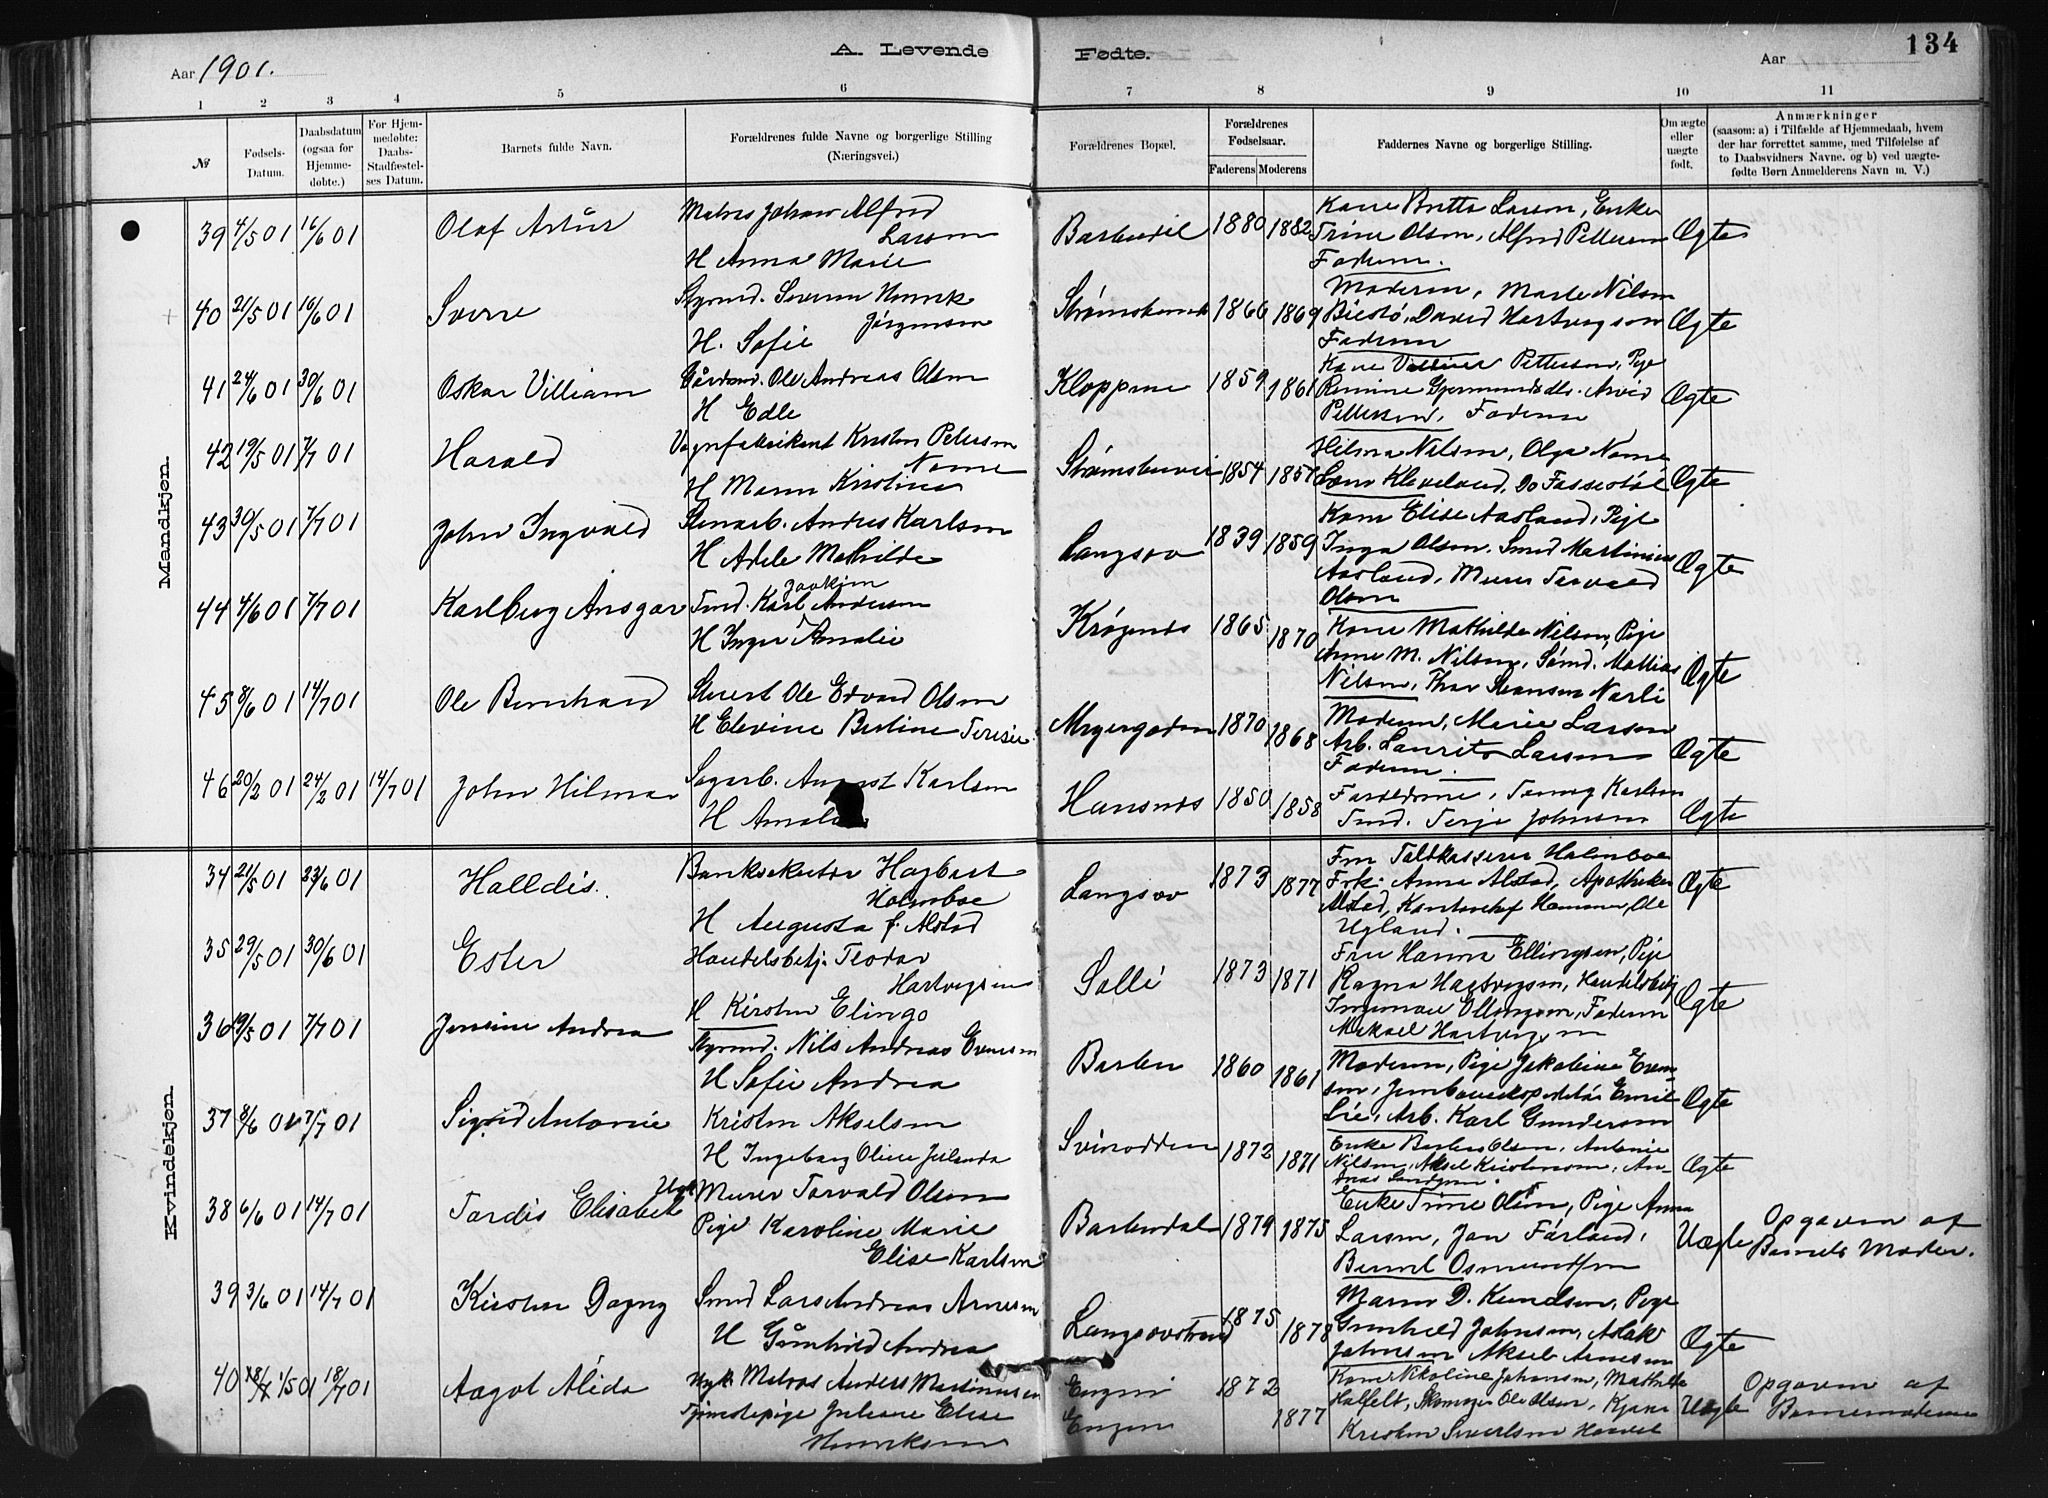 Aar 1901.
A. Levende
Fødte.
Aar
134
1 2 3 4 5 6 7 8 9 10 11
№
Fødsels-
Datum.
Daabsdatum
(ogsaa for
Hjemme-
døbte.)
For Hjem-
medøbte:
Daabs-
Stadfæstel-
ses Datum.
Barnets fulde Navn.
Forældrenes fulde Navne og borgerlige Stilling
(Næringsvei.)
Forældrenes Bopæl.
Forældrenes
Fødselsaar.
Faderens Moderens
Faddernes Navne og borgerlige Stilling.
Om ægte
eller
uægte
født.
Anmærkninger
(saasom: a) i Tilfælde af Hjemmedaab, hvem
der har forrettet samme, med Tilføielse af
to Daabsvidners Navne. og b) ved uægte-
fødte Børn Anmelderens Navn m. V.)
Mandkjøn.
39 4/5 01 16/6 01 Olaf Artur
Matros Johan Alfred
Larsen
H Anna Marie
Barbudal 1880 1882
Kone Berta Larsen, Enke
Trine Olsen, Alfred Pettersen
Faderen.
Ægte
40 21/5 01 16/6 01 Sverre
Styrmd. Severin Henrik
Jørgensen
H. Sofie
1866 1869
Moderen, Marte Nilsen
David Hartvigsen
Faderen
Ægte
41 24/6 01 30/6 01 Oskar Villiam
Gårdmd. Ole Andreas Olsen
H Edle
Kloppene 1859 1861
Kone Pettersen, Pige
Arvid
Pettersen, Faderen
Ægte
42 19/5 01 7/7 01 Harald
Vognfabrikant Kristen Petersen
Name
H Maren Kristine
1854 1857
Hilma Nilsen, Olga Name
Kleveland,
Ægte
43 30/5 01 7/7 01 John Ingvald
Stenarb. Andres Karlsen
H Adele Mathilde
Langsæv 1839 1859
Kone Elise Aasland, Pige
Inga Olsen, Smed Martinius
Aasland, Murer Torvald
Olsen
Ægte
44 4/6 01 7/7 01 Karlberg Ansgar
Joakim
Tmd. Karl Andersen
H Inger Amalie
Krøgenes 1865 1870
Kone Mathilde Nilsen, Pige
Anne M. Nilsen, Sømd. Mattias
Nilsen,
Ægte
45 8/6 01 14/7 01 Ole Bernhard
Stuert Ole Edvard Olsen
H Elevine Bertine Teresie
1870 1868
Moderen, Marie Larsen
Arb. Laurits Larsen
Faderen.
Ægte
46 20/2 01 24/2 01 14/7 01 John Hilmar
Sagarb. August Karlsen
H
Hansnes 1850 1858
Forældrene, Karlsen
Tmd. Terje Johnsen
Ægte
Kvindekjøn.
34 21/5 01 23/6 01 Halldis.
Hagbart
Holmboe
H Augusta f. Alstad
Langsæv 1873 1877
Fru Toldkasserer Holmboe
Frk. Anna Alstad, Apotheker
Alstad, Kontorchef Hammer, Ole
Ugland.
Ægte
35 29/5 01 30/6 01 Ester
Handelsbetj. Teodor
Hartvigsen
H Kirsten Elingo
Solli 1873 1871
Fru Hanna Ellingsen, Pige
Ragna Hartvigsen, Handelsbetj
Ellingsen, Faderen
Mikael Hartvigsen
Ægte
36 19/5 01 7/7 01 Jensine Andrea
Styrmd. Nils Andreas Evensen
H Sofie Andrea
Barbu 1860 1861
Moderen, Pige Jakobine Even-
sen, Jernbaneekspeditør Emil
Lie, Arb. Karl Gundersen
Ægte
37 8/6 01 7/7 01 Sigrid Antonie
Kristen Akselsen
H Ingeborg Oline Julianda
Svinodden 1872 1871
Enke Olsen, Antonie
Nilsen, Aksel Kristensen, An-
dreas
Ægte
38 6/6 01 14/7 01 Tordis Elisabet
Ugk. Murer Torvald Olsen
Pige Karoline Marie
Elise Karlsen
Barbudal 1879 1875
Enke Trine Olsen, Pige Anna
Larsen, Jan Færland,
Bernt Osmundsen
Uægte
Opgaven af
Barnets Moder.
39 3/6 01 14/7 01 Kirsten Dagny
Smed Lars Andreas Arnesen
H Gunhild Andrea
Langsævstrand 1875 1878
Maren D. Knudsen, Pige
Gunhild Johnsen, Aslak
Johnsen Aksel Arnesen
Ægte
40 1/5 01 18/7 01 Aagot Alida
Ugk. Matros Anders Martiniussen
Tjenestepige Juliane Elise
Henriksen
Engene
Engene
1872
1877
Kone Nikoline Johansen, Mathilde
Halfelt, Ole Olsen,
Kristen
Uægte
Opgaven af
Barnemoderen